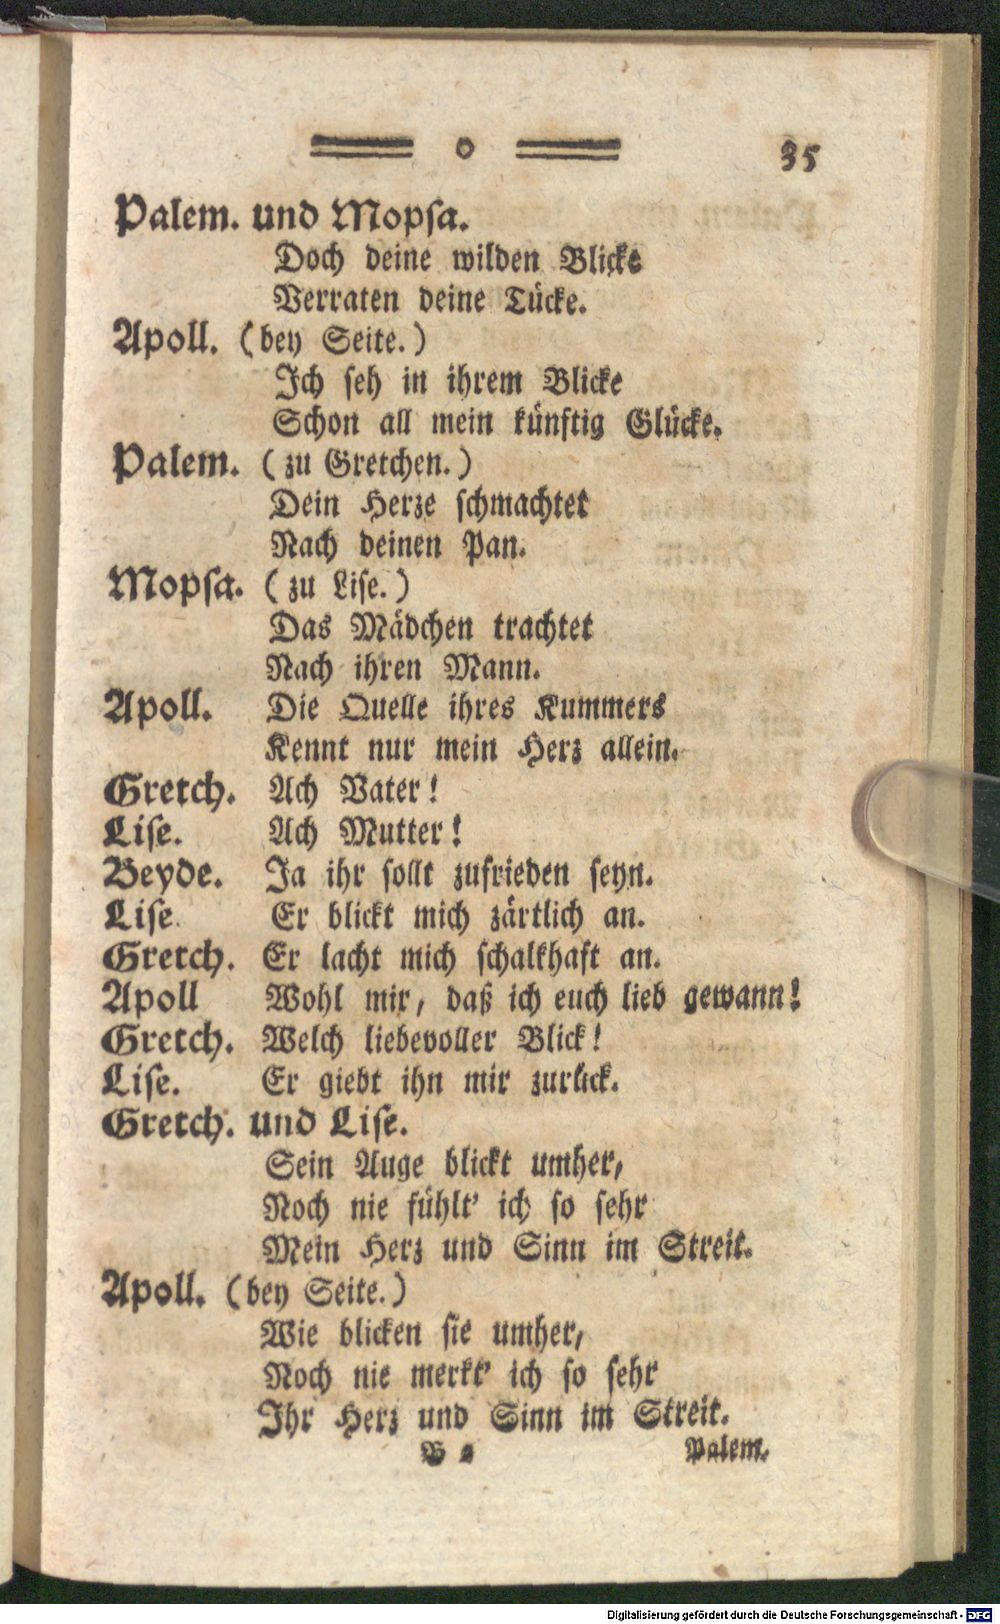 o 35
Palem. und Mopsa.
Doch deine wilden Blicke
Verraten deine Tücke.
Apoll. (bey Seite.)
Ich seh in ihrem Blicke
Schon all mein künftig Glücke.
Palem. (zu Gretchen.)
Dein Herze schmachtet
Nach deinen Pan.
Mopsa. (zu Lise.)
Das Mädchen trachtet
Nach ihren Mann.
Apoll. Die Quelle ihres Kummers
Kennt nur mein Herz allein.
Gretch. Ach Vater!
Lise. Ach Mutter!
Beyde. Ja ihr sollt zufrieden seyn.
Lise. Er blickt mich zärtlich an.
Gretch. Er lacht mich schalkhaft an.
Apoll Wohl mir, daß ich euch lieb gewann!
Gretch. Welch liebevoller Blick!
Lise. Er giebt ihn mir zurück.
Gretch. und Lise.
Sein Auge blickt umher,
Noch nie fühlt' ich so sehr
Mein Herz und Sinn im Streit.
Apoll. (bey Seite.)
Wie blicken sie umher,
Noch nie merkt' ich so sehr
Ihr Herz und Sinn im Streit.
Palem.
Digitalisierung gefördert durch die Deutsche Forschungsgemeinschaft - DFG